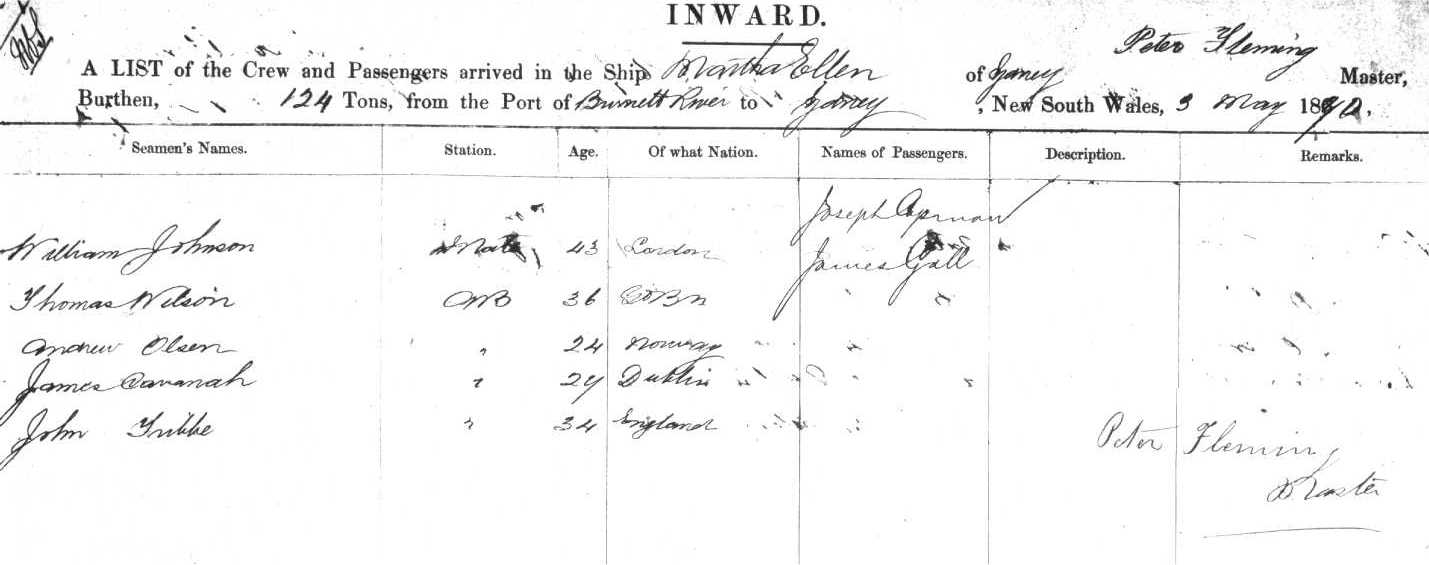 INWARD.
Peter Fleming
A LIST of the Crew and Passengers arrived in the Ship Martha Ellen of Sydney Master,
Burthen, 124 Tons, from the Port of Burnett River to Sydney, New South Wales, 3 May 18
Seamen's Names. Station. Age. Of what Nation. Names of Passengers. Description. Remarks.
Joseph
William Johnson Mate 43 London James Gall
Thomas Wilson AB 36
Andrew Olsen " 24 Norway
James Cavanah " 29 Dublin
John Tribbe " 34 England
Peter Fleming
Master